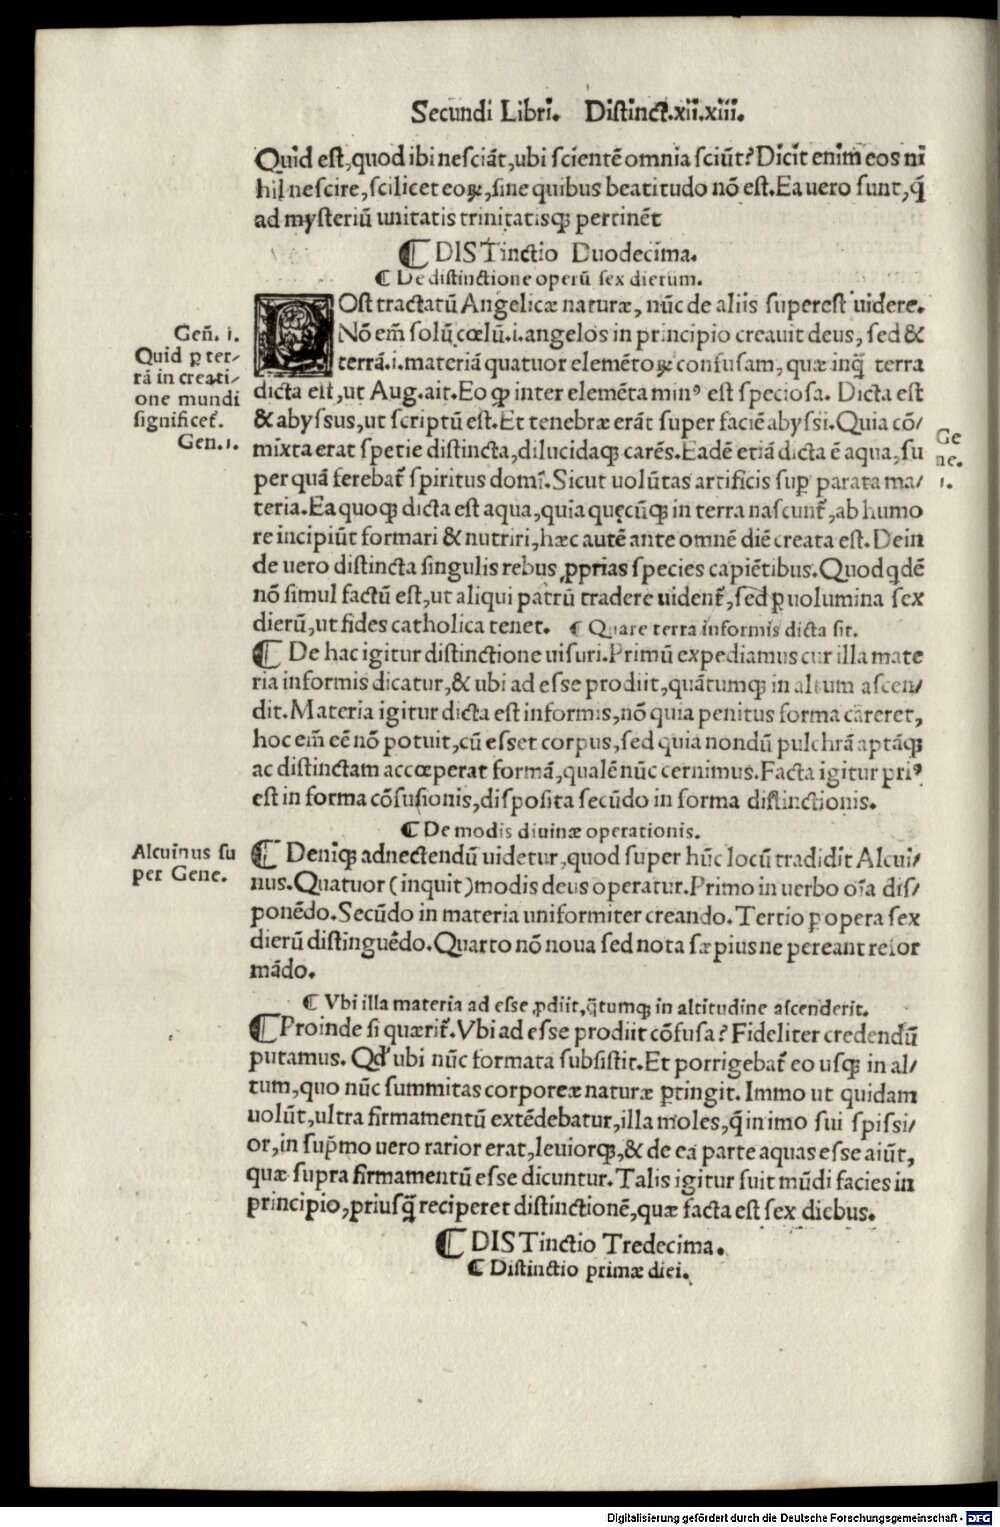 Secundi Libri. Distinct.xii.xiii.
Quid est,quod ibi nesciāt,ubi scientē omnia sciūt? Dicit enim eos ni
hil nescire,scilicet eoꝝ,sine quibus beatitudo nō est.Ea vero sunt,q̄
ad mysteriū unitatis trinitatisqꝫ pertinēt
¶ DISTinctio Duodecima.
¶ De distinctione operū sex dierum.
POst tractatū Angelicæ naturæ, nūc de aliis superest uidere.
Nō em̄ solū cœlū.i.angelos in principio creauit deus, sed &
terrā.i.materiā quatuor elemētoꝝ confusam, quæ inq̄ terra
dicta est,ut Aug.ait.Eo ꝙ inter elemēta minꝰ est speciosa. Dicta est
& abyssus,ut scriptū est.Et tenebræ erāt super faciē abyssi.Quia cō/
mixta erat spetie distincta,dilucidaqꝫ carēs.Eadē etiā dicta ē aqua,su
per quā ferebat̄ spiritus domī.Sicut uolūtas artificis sup̱ parata ma/
teria.Ea quoqꝫ dicta est aqua,quia quęcūqꝫ in terra nascunt̄,ab humo
re incipiūt formari & nutriri,hæc autē ante omnē diē creata est.Dein
de uero distincta singulis rebus ꝓprias species capiētibus.Quod qdē
nō simul factū est,ut aliqui patrū tradere uident̄,sed ꝑ uolumina sex
dierū,ut fides catholica tenet. ¶ Quare terra informis dicta sit.
¶ De hac igitur distinctione uisuri.Primū expediamus cur illa mate
ria informis dicatur,& ubi ad esse prodiit,quātumqꝫ in altum ascen/
dit.Materia igitur dicta est informis,nō quia penitus forma careret,
hoc em̄ eē nō potuit,cū esset corpus,sed quia nondū pulchrā aptāqꝫ
ac distinctam accœperat formā,qualē nūc cernimus.Facta igitur priꝰ
est in forma cōfusionis,disposita secūdo in forma distinctionis.
¶ De modis diuinæ operationis.
¶ Deniqꝫ adnectendū uidetur,quod super hūc locū tradidit Alcui/
nus.Quatuor (inquit) modis deus operatur.Primo in uerbo oīa dis/
ponēdo.Secūdo in materia uniformiter creando.Tertio ꝑ opera sex
dierū distinguēdo.Quarto nō noua sed nota sæpius ne pereant refor
mādo.
¶ Vbi illa materia ad esse ꝓdiit,q̄tumqꝫ in altitudine ascenderit.
¶ Proinde si quærit̄.Vbi ad esse prodiit cōfusa? Fideliter credendū
putamus. Qđ ubi nūc formata subsistit.Et porrigebat̄ eo usqꝫ in al/
tum,quo nūc summitas corporeæ naturæ ꝑtingit. Immo ut quidam
uolūt,ultra firmamentū extēdebatur,illa moles,q̄ in imo sui spissi/
or,in sup̄mo uero rarior erat,leuiorqꝫ,& de ea parte aquas esse aiūt,
quæ supra firmamentū esse dicuntur.Talis igitur fuit mūdi facies in
principio,priusq̄ reciperet distinctionē,quæ facta est sex diebus.
¶ DISTinctio Tredecima.
¶ Distinctio primæ diei.
Geñ. i.
Quid ꝑ ter/
rā in creati/
one mundi
significet̄.
Gen.1.
Ge
ne.
1.
Alcuinus su
per Gene.
Digitalisierung gefördert durch die Deutsche Forschungsgemeinschaft - DFG